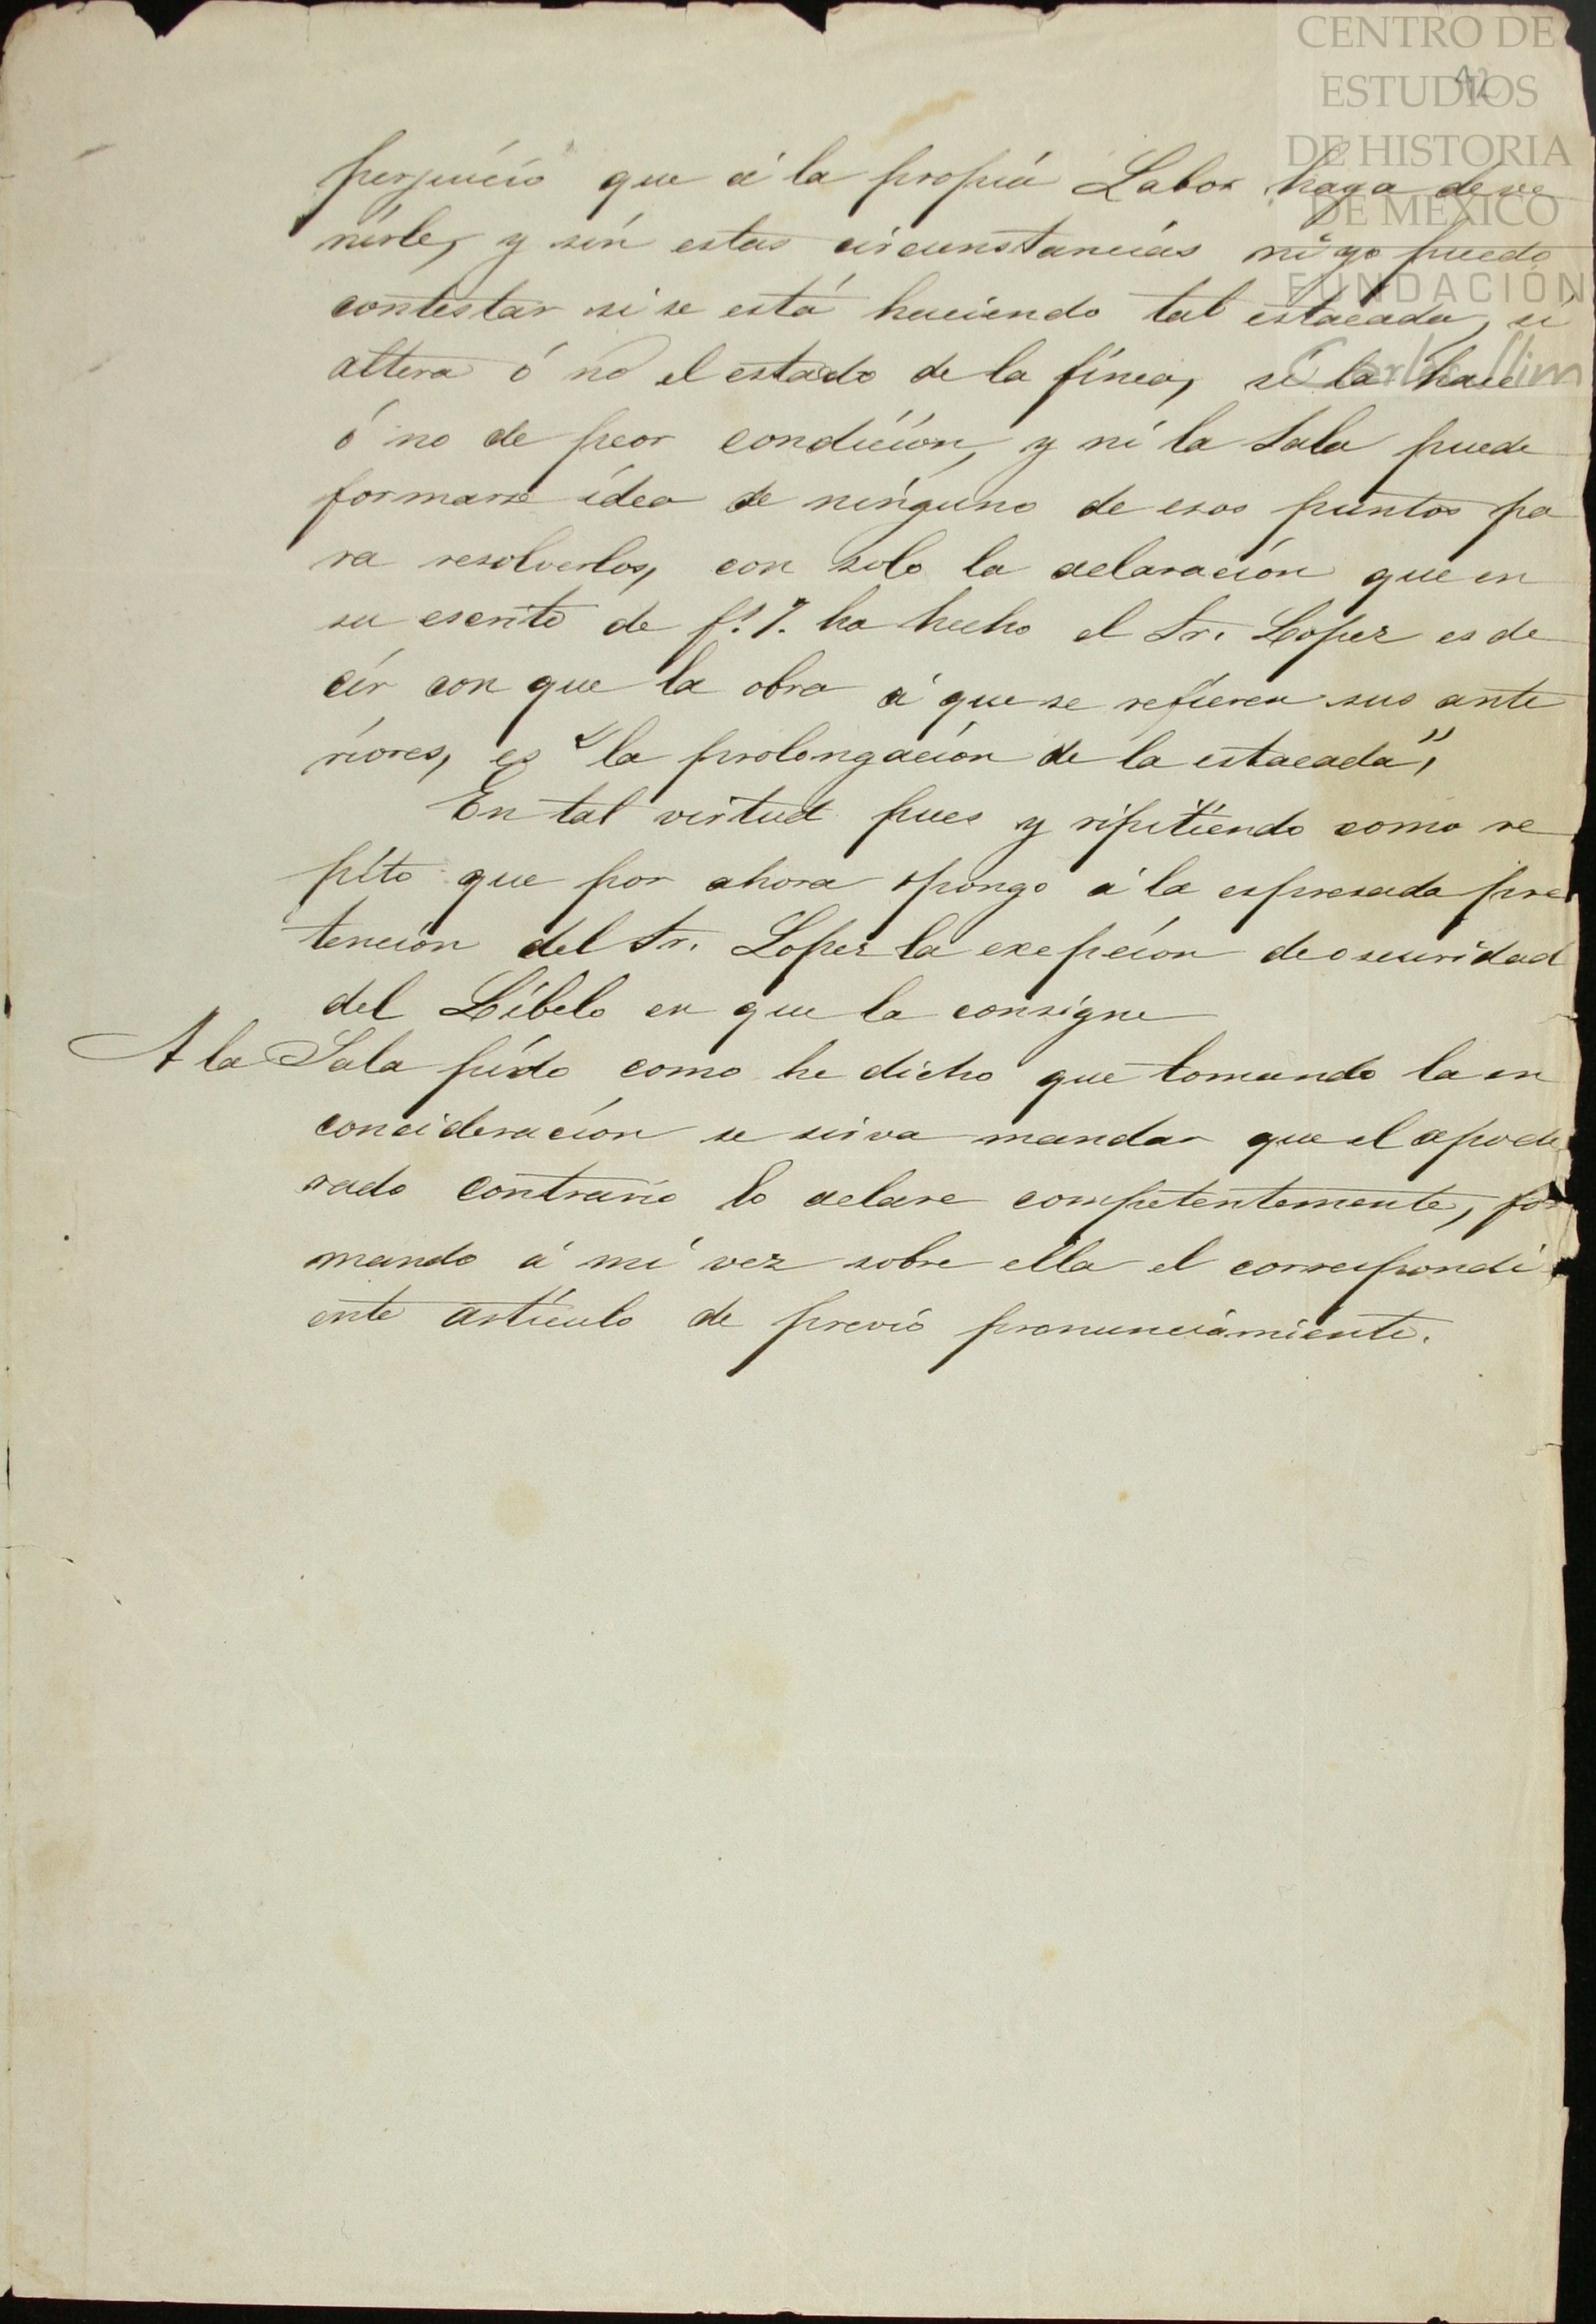 CENTRO DE
ESTUDIOS
DE HISTORIA
DE MÉXICO
FUNDACIÓN
Carlos Slim
42
perjuicio que á la propia Labor haya de ve
nirle, y sin estas circunstancias ni yo puedo
contestar si se está haciendo tal estacada, si
altera ó no el estado de la finca, si la hace
ó no de peor condición, y ni la Sala puede
formarse idea de ninguno de esos puntos pa
ra resolverlos, con solo la aclaración que en
su escrito de fs. 7. ha hecho el Sr. Lopez es de
cir con que la obra á que se refieren sus ante
riores, es "la prolongación de la estacada",
En tal virtud pues y ripitiendo como re
pito que por ahora opongo á la espresada pre
tención del Sr. Lopez la exepción de oscuridad
del Libelo en que la consigne
A la Sala pido como he dicho que tomando la en
concideración se sirva mandar que el apode
rado contrario lo aclare competentemente, for
mando á mi vez sobre ella el correspondi
ente artículo de previo pronunciamiento.